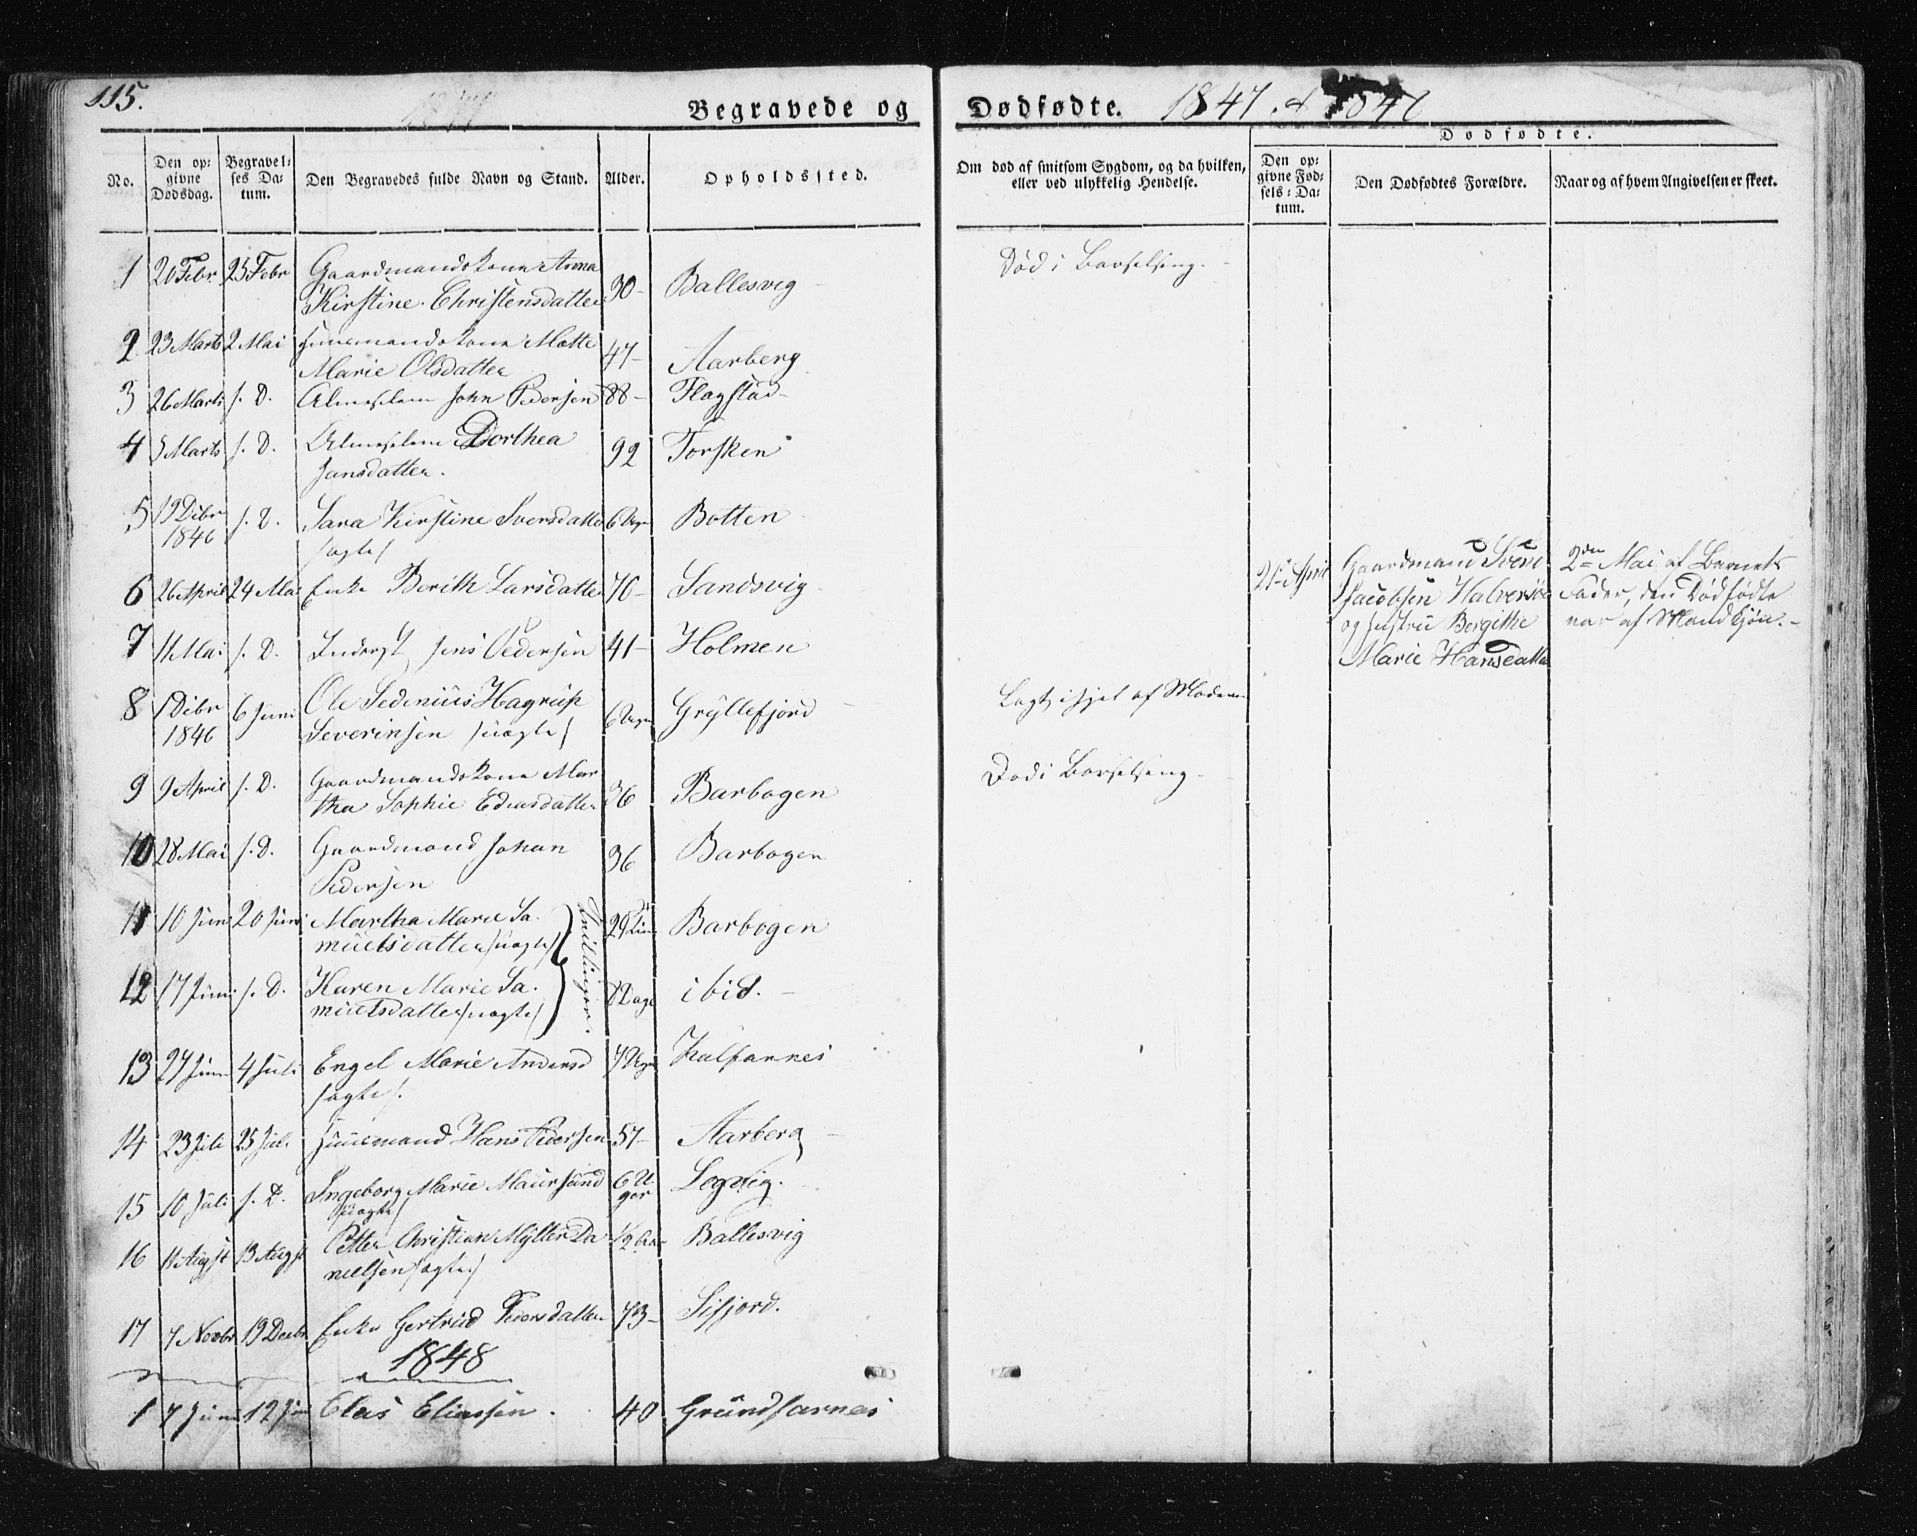 115.
Begravede og
Dødfødte. 1847. &
Dødfødte.
No.
Den opgivne Dødsdag.
Begravelses Datum.
Den Begravedes fulde Navn og Stand.
Alder.
Opholdssted.
Om død af smitsom Sygdom, og da hvilken, eller ved ulykkelig Hendelse.
Den opgivne Fødsels-Datum.
Den Dødfødtes Forældre.
Naar og af hvem Angivelsen er skeet.
1 20 Febr 25 Febr Gaardmandskone Anna
Kirstine Christensdatter 30 Ballesvig Død i Barselseng.
2 23 Marts 2 Mai Huusmandskone Mette
Marie Olsdatter 47 Aarberg
3 26 Marts s. D. Almeslem John Pedersen 88 Flagstad
4 5 Marts s. D. Almeslem Dorthea
Jansdatter. 92 Torsken
5 19 Dcbr
1846 s. D. Sara Kirstine Sversdatter
/ægte/ 6 Botten
6 26 April 24 Mai Enke Berith Larsdatter 70 Sandsvig
7 11 Mai s. D. Inderst Jens Pedersen 41 Holmen
8 1 Dcbr
1846 6 Juni Ole Sedenius Hagrup
Severinsen /uægte/ Gryllefjord Lagt ihjel af Moderen
9 9 April s. D. Gaardmandskone Mar
tha Sophie Edisdatter 36 Barbogen Død i Barselseng
10 28 Mai s. D. Gaardmand Johan
Pedersen 36 Barbogen
11 10 Juni 20 Juni Martha Marie Sa.
muelsdatter /uægte/ Barbogen
Tvillinger.
12 17 Juni s. D. Karen Marie Sa.
muelsdatter /uægte/ 8 Dage ibid.
13 27 Juni 4 Juli Engel Marie Andersd
/ægte/. 7 Kalfarnes
14 23 Juli 25 Juli Huusmand Hans Pedersen 57 Aarberg
15 10 Juli s. D. Ingeborg Marie Maursund
/uægte/ 6 U
ger Legvig.
16 11 Augst 13 Augst Petter Christian Mÿller Da
nielsen /ægte/ 1/2 Aar Ballesvig
17 7 Novbr 19 Decbr Enke Gertrud Pedersdatter 73 Sifjord.
1848
1 7 Juni 12 Juni Elas Eliassen. 40 Grundfarnes
21 April
Gaardmand Sver
Jacobsen Halvorsø
og Hustru Bergithe
Marie Hansdatter
2den Mai af Barnets
Fader, den Dødfødte
var af Mandkjøn.